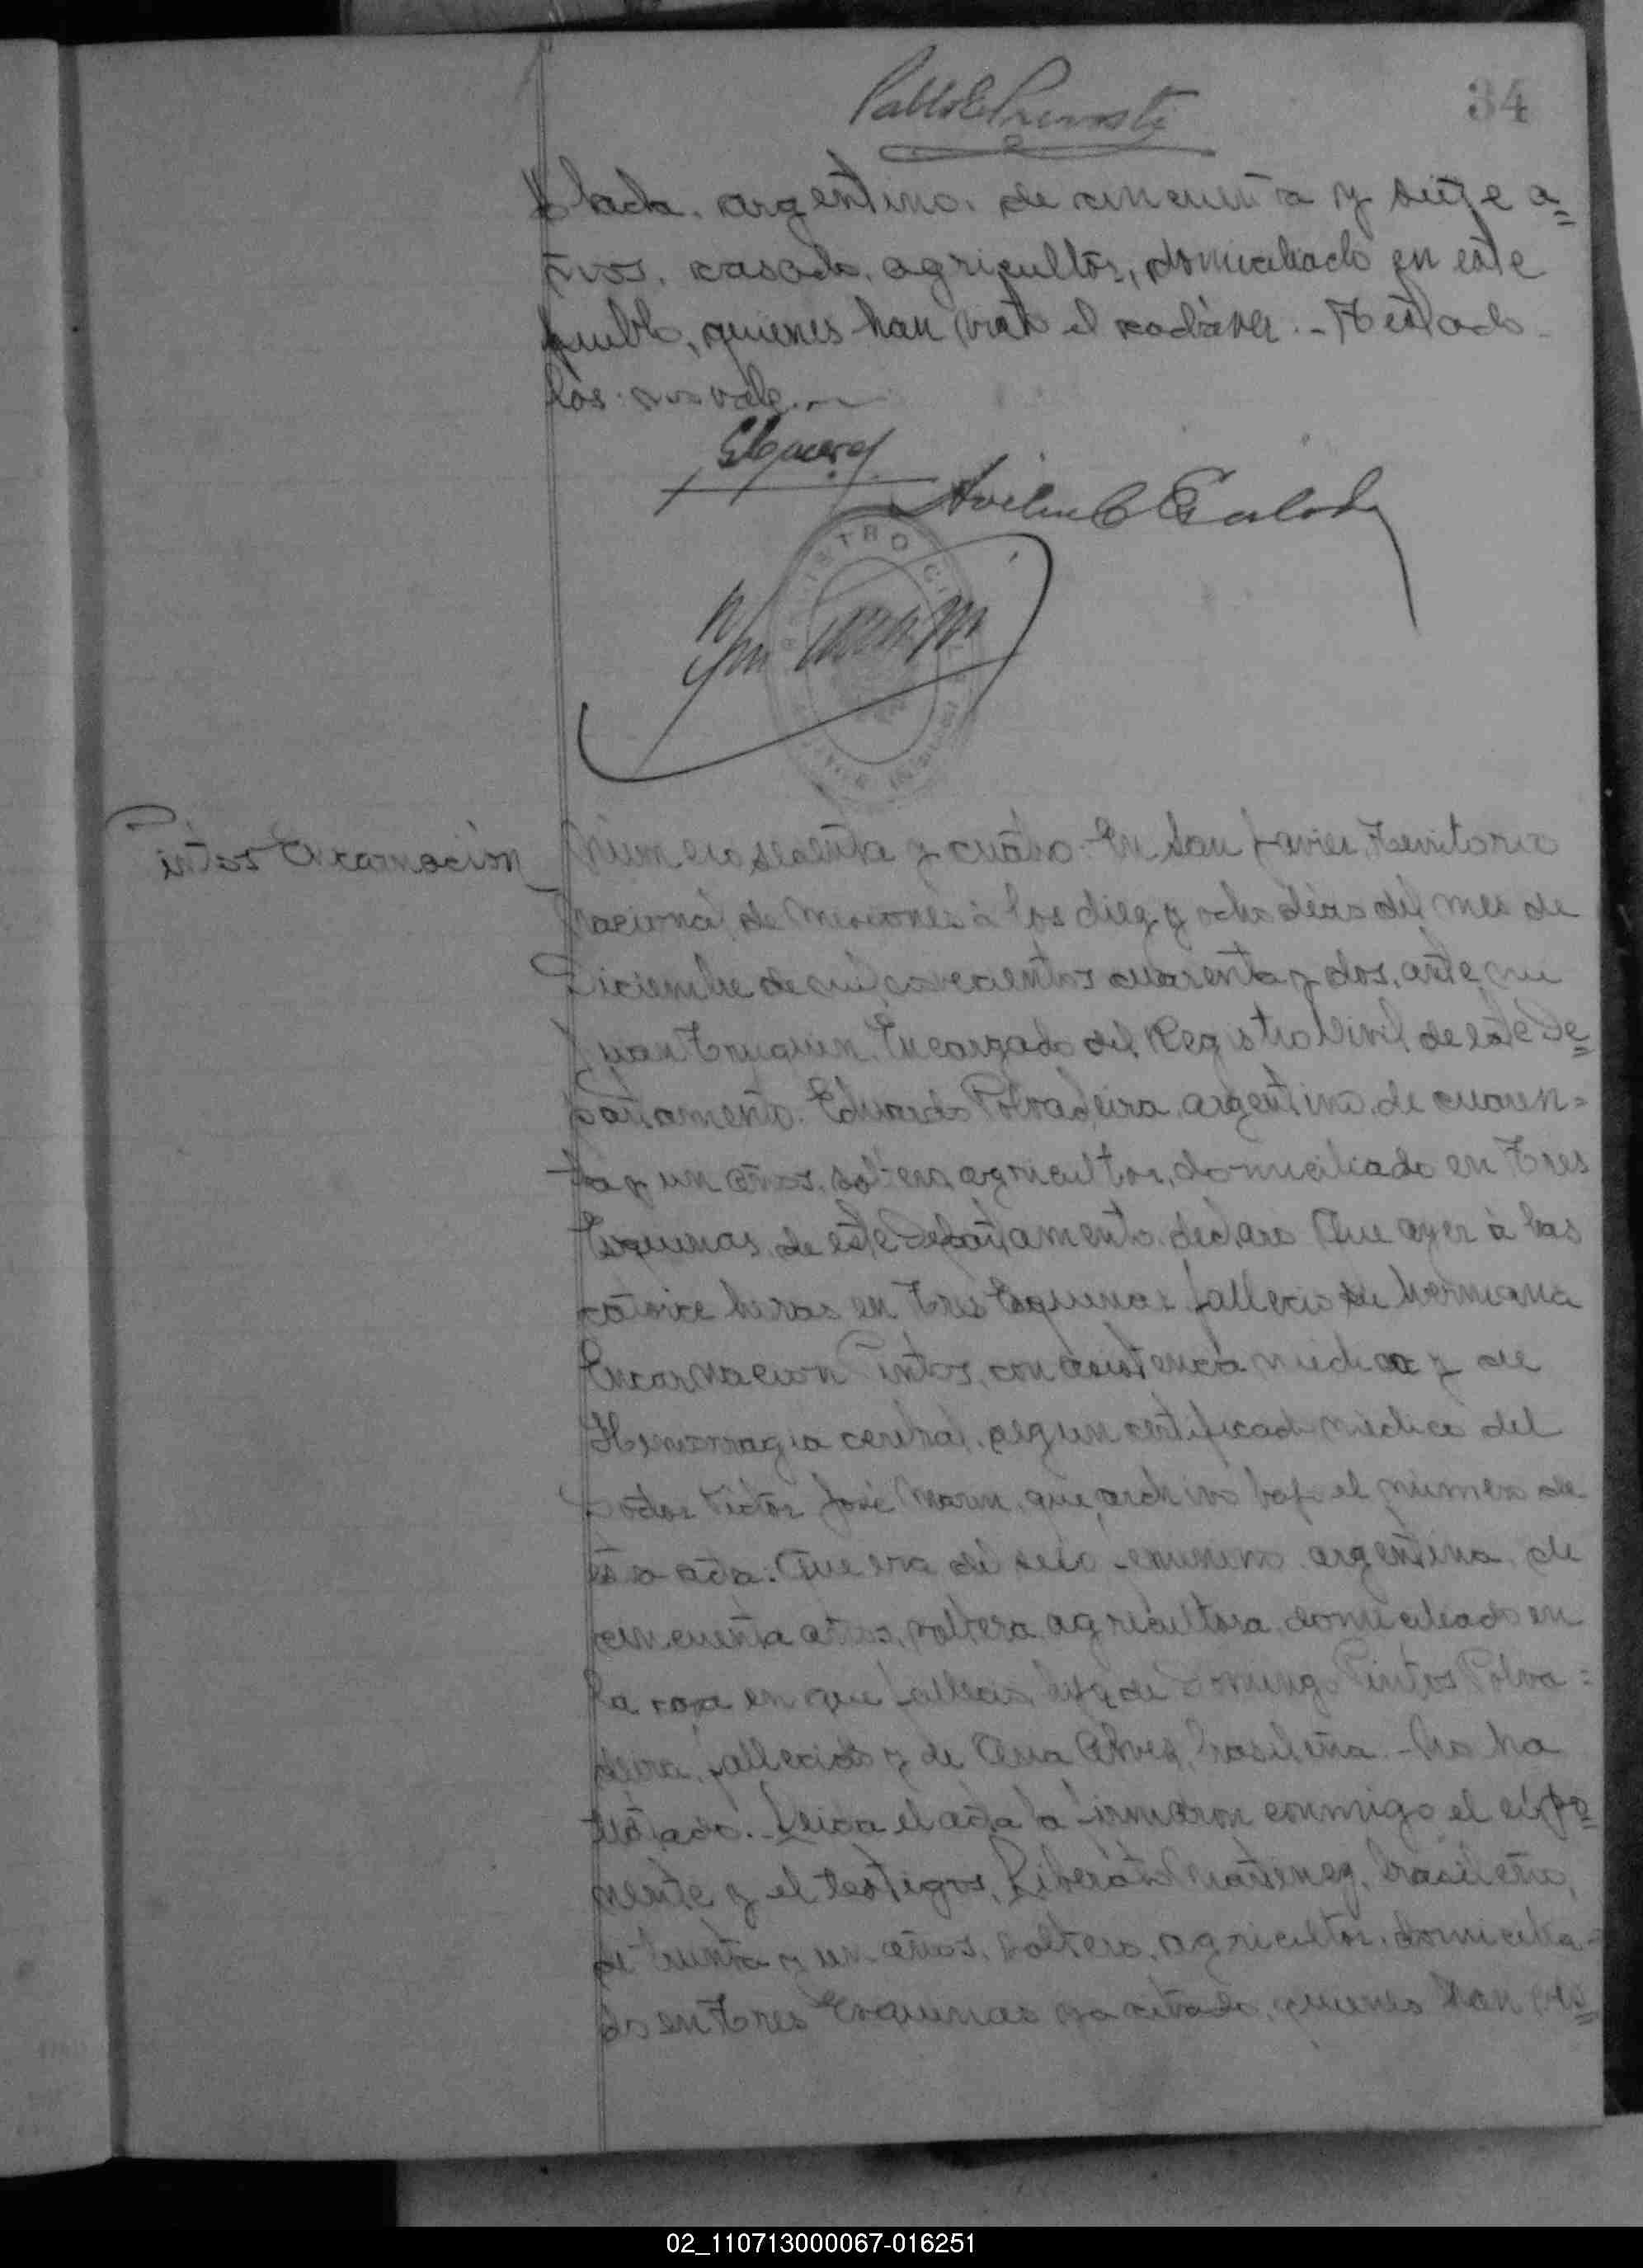 34
lada, argentino, de cincuenta y siete a=
ños, casado, agricultor, domiciliado en este
pueblo, quienes han visto el cadáver.- Testado
los: no vale.
Pintos Encarnación
Número sesenta y cuatro: En San Javier, Territorio
Nacional de Misiones á los diez y ocho días del mes de
Diciembre de mil novecientos cuarenta y dos, ante mi
Juan Encargado del Registro Civil de este De=
partamento. Eduardo Polvadeira, argentino, de cuaren=
ta y un años, soltero, agricultor, domiciliado en Tres
Esquinas de este Departamento declara Que ayer á las
catorce horas en Tres Esquinas falleció su hermana
Encarnación Pintos, con asistencia médica y de
Hemorragia cerebral, según certificado médico del
Doctor Víctor José Marin, que archivo bajo el número de
esta acta: Que era de sexo femenino argentina, de
cincuenta años, soltera, agricultora domiciliado en
la casa en que falleció, hija de Domingo Pintos Polva=
deira, fallecido y de Ana Alves, brasileña.- No ha
testado.- Leida el acta la firmaron conmigo el expo=
nente y el testigos, Liberato Martinez, brasileño,
de treinta y un años, soltero, agricultor, domicilia=
do en Tres Esquinas ya citado, quienes han vis=
02_110713000067-016251